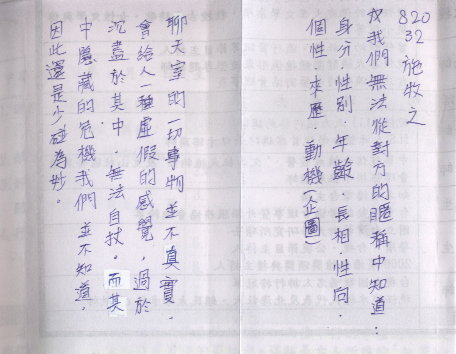 82032 施牧之
我們無法從對方的暱稱中知道：
身分．性別．年齡．長相．性向．
個性．來歷．動機(企圖)
聊天室的一切事物並不真實，
會給人一種虛假的感覺，過於
沉盡於其中，無法自扙。而其
中隱藏的危機我們並不知道，
因此還是少碰為妙。